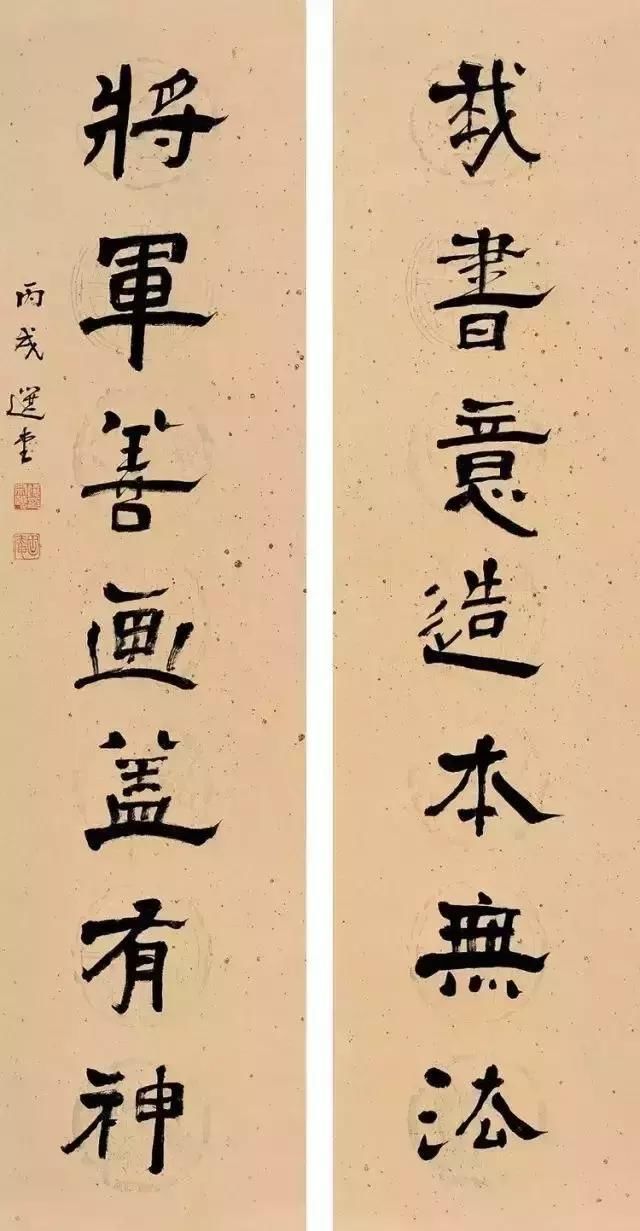 我書意造本無法
將軍善画盖有神
丙戌選堂